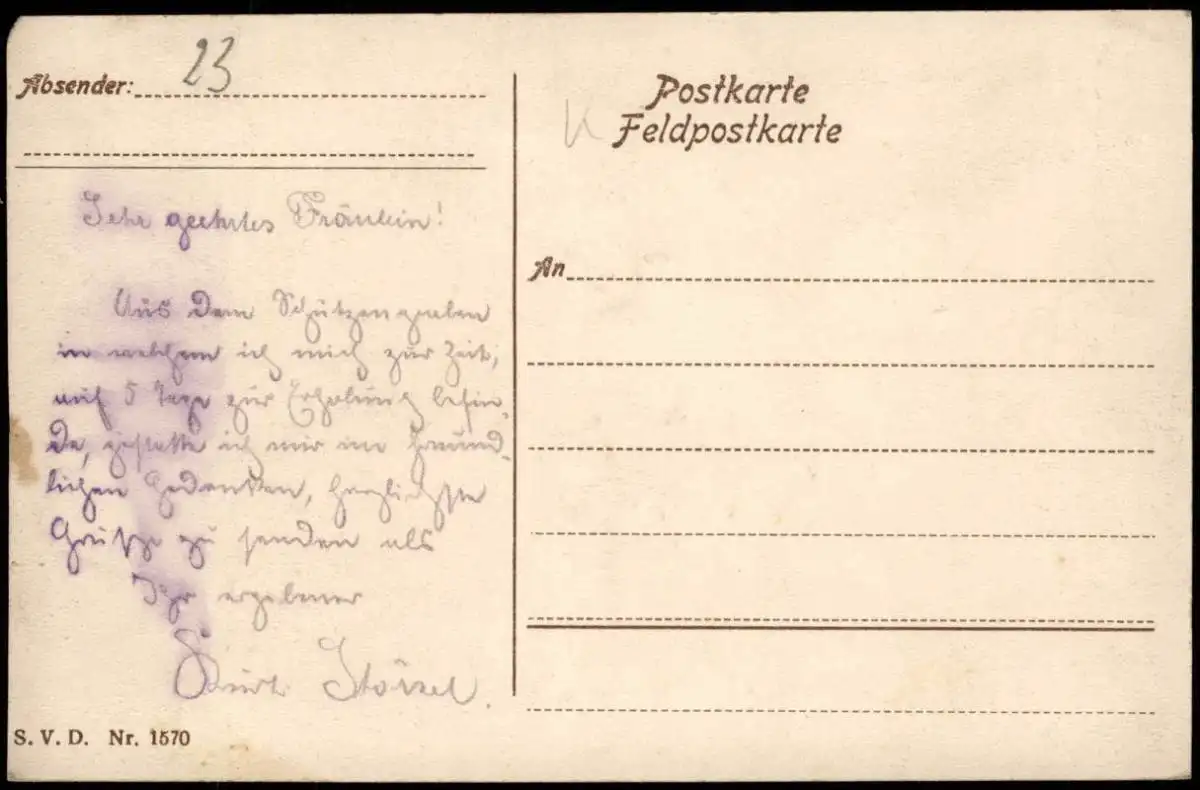 Absender: 23
Postkarte
Feldpostkarte
An
Sehr geehrtes Fräulein!
Aus dem Schützengraben
in welchem ich mich zur Zeit,
auf 5 Tage zur Erholung befin-
de, gestatte ich mir im freund-
lichen Gedenken, herzlichste
Grüsze zu senden als
Ihr ergebener
Kurt
S. V. D. Nr. 1570